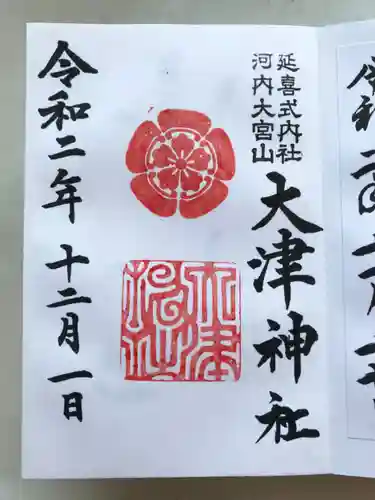 延喜式内社
河内大宮山
大津神社
令和二年 十二月一日